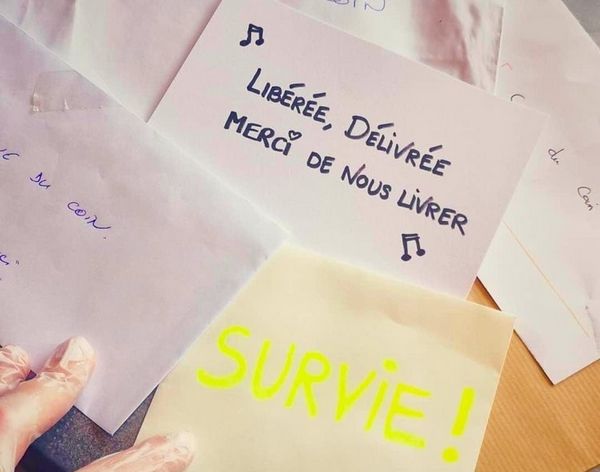 COIN
♫
LIBÉRÉE, DÉLIVRÉE
MERCI DE NOUS LIVRER
♫
du Coin
DU COIN.
SURVIE !